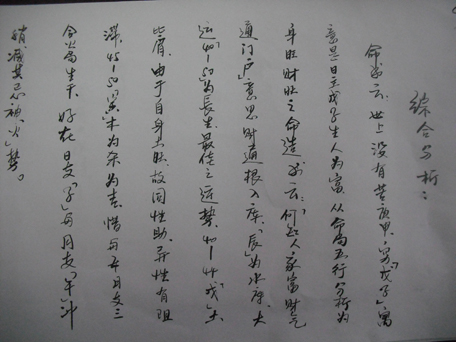 綜合分析：
命書云、世上没有苦庚申、窮「戊子」寓
意是日主戊子生人为富从命局五行分析为
身旺财旺之命造 书云：「何知人家富财气
通门户」意思财通根入库、「辰」为水库、大
运40—50为長生最佳之运势、40—44「戊」土
比肩、由于自身土旺、故同性助、异性有阻
滞、45—50「寅」木为杀为喜、惜与年月支三
合火局生干、好在日支「子」与月支「午」冲
稍减其忌神「火」势。